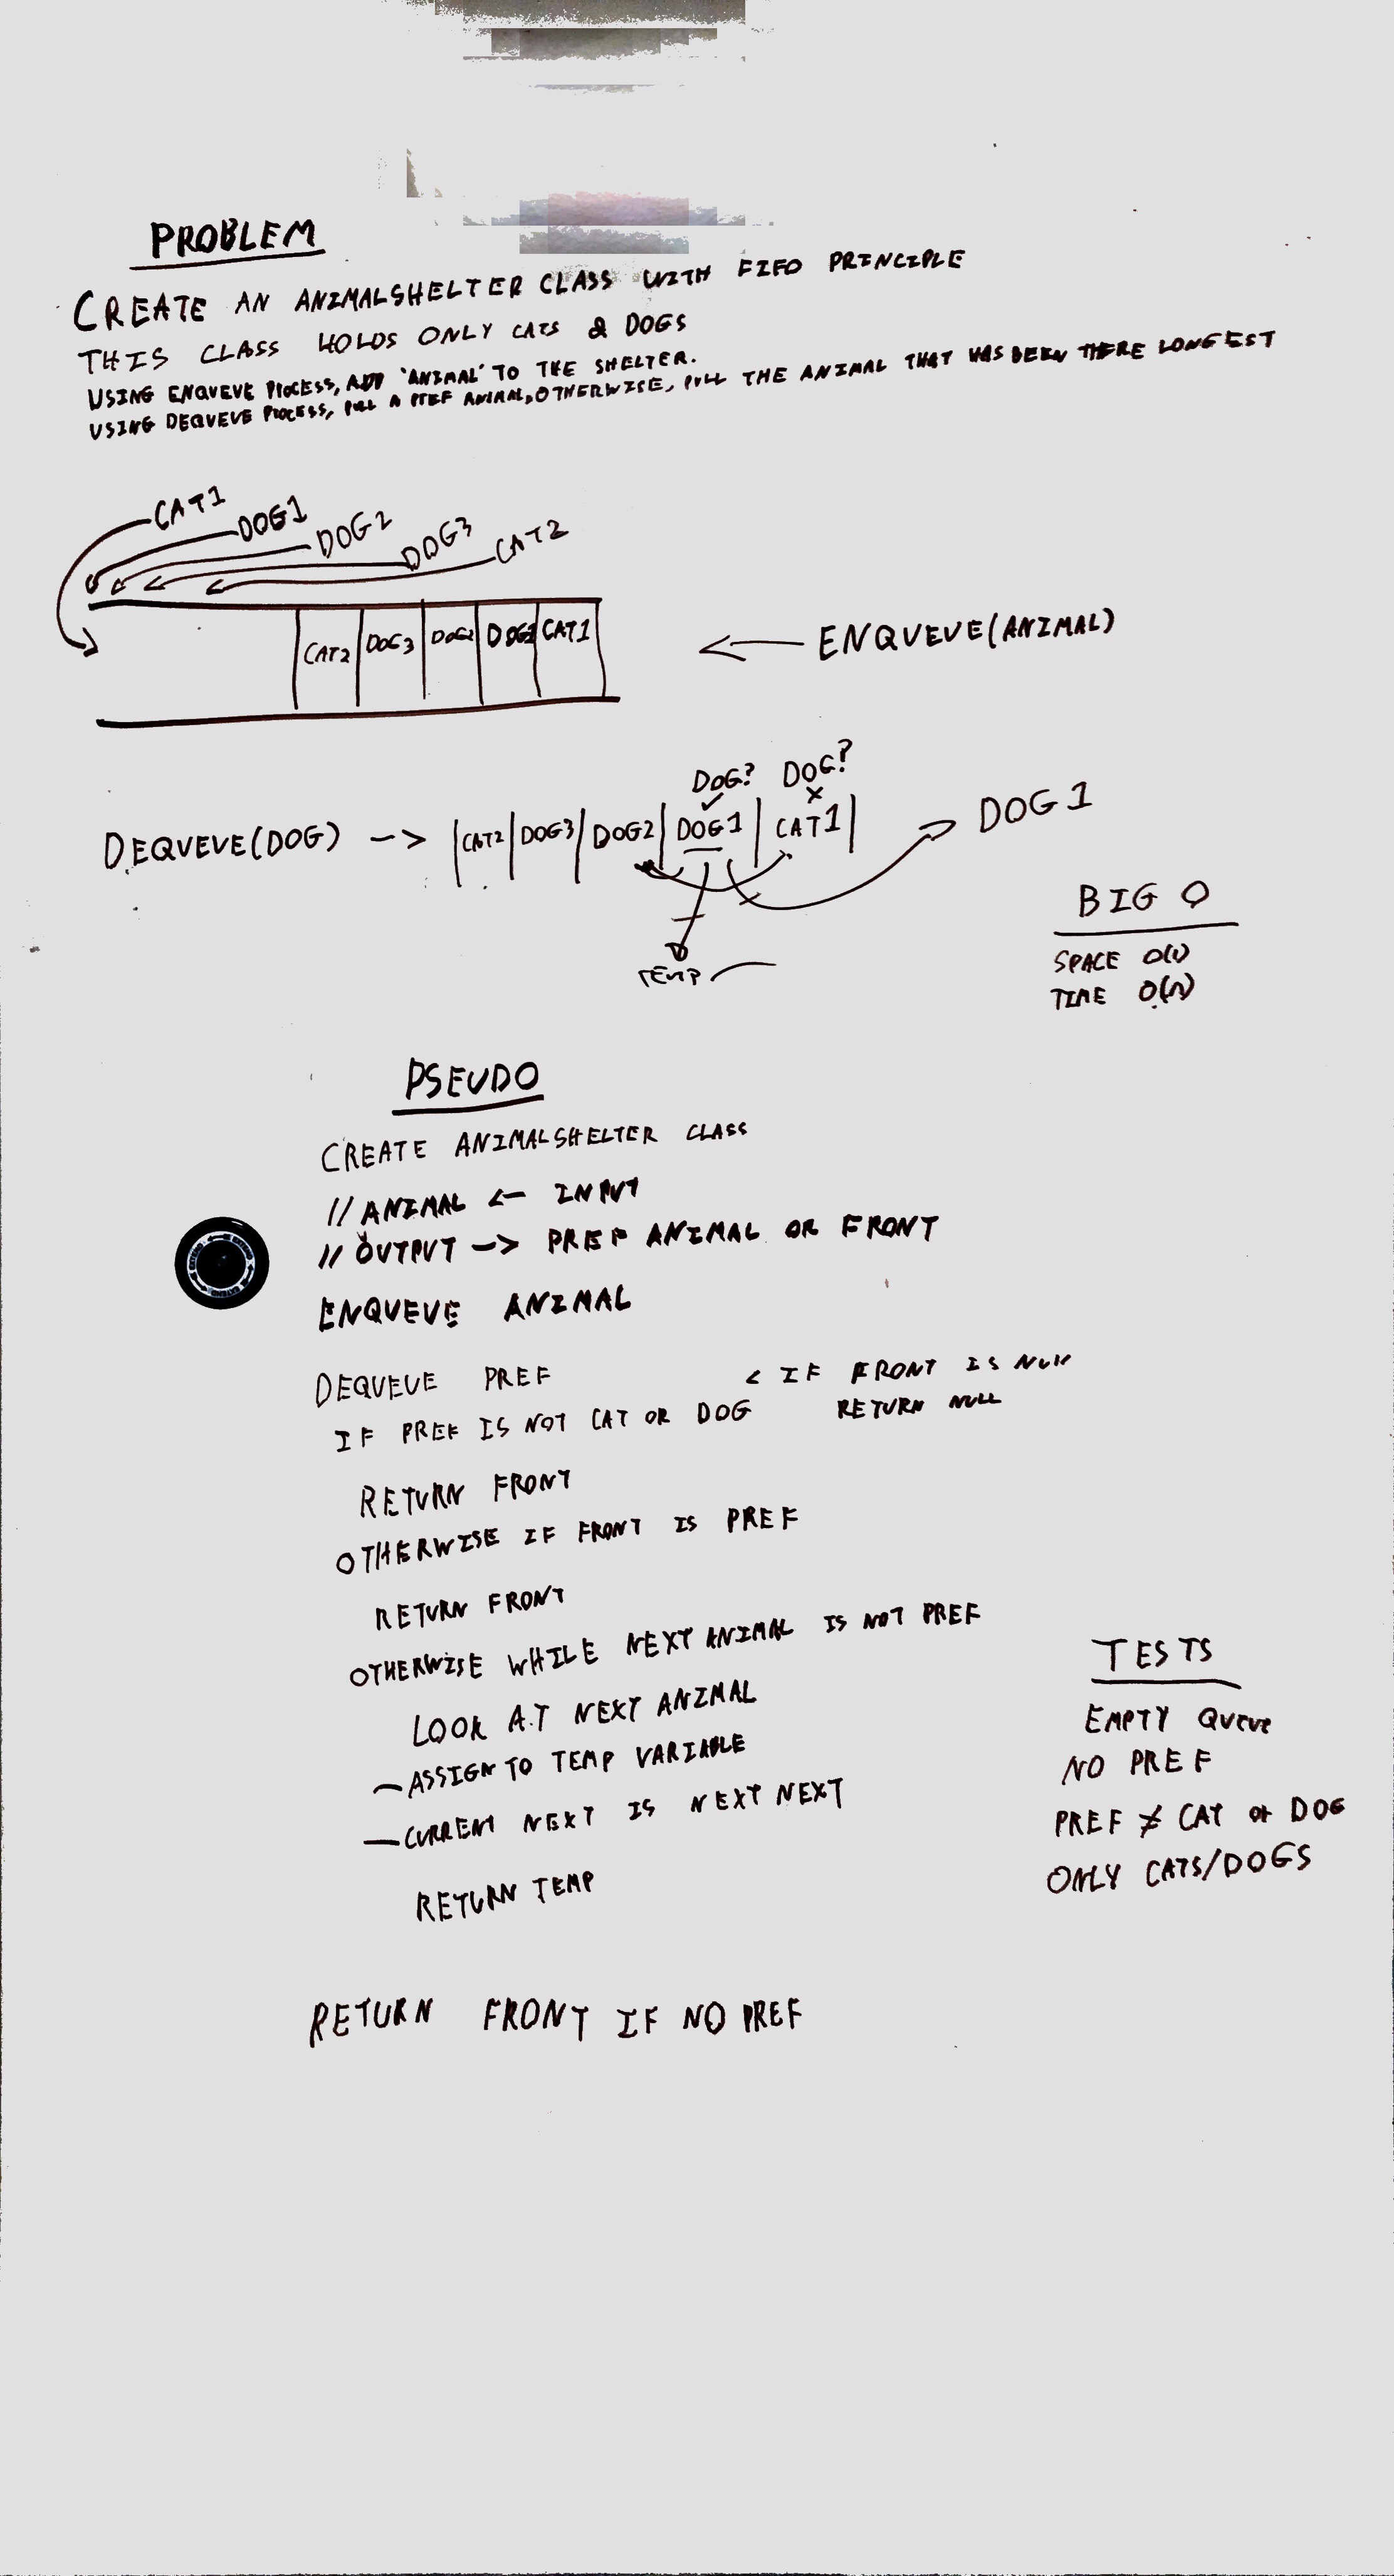 PROBLEM
CREATE AN ANIMALSHELTER CLASS WITH FIFO PRINCIPLE
THIS CLASS HOLDS ONLY CATS & DOGS
USING ENQUEUE PROCESS, ADD 'ANIMAL' TO THE SHELTER.
USING DEQUEUE PROCESS, PULL A PREF ANIMAL, OTHERWISE, PULL THE ANIMAL THAT HAS BEEN THERE LONGEST
CAT1
DOG1
DOG2
DOG3
CAT2
CAT2 DOG3 DOG2 DOG1 CAT1
<— ENQUEUE(ANIMAL)
DOG? DOG?
✓ ×
DEQUEUE(DOG) -> |CAT2|DOG3|DOG2|DOG1|CAT1|
DOG1
TEMP
BIG O
SPACE O(1)
TIME O(N)
PSEUDO
CREATE ANIMALSHELTER CLASS
// ANIMAL <- INPUT
// OUTPUT -> PREF ANIMAL OR FRONT
ENQUEUE ANIMAL
DEQUEUE PREF
< IF FRONT IS NULL
RETURN NULL
IF PREF IS NOT CAT OR DOG
RETURN FRONT
OTHERWISE IF FRONT IS PREF
RETURN FRONT
OTHERWISE WHILE NEXT ANIMAL IS NOT PREF
LOOK AT NEXT ANIMAL
— ASSIGN TO TEMP VARIABLE
— CURRENT NEXT IS NEXT NEXT
RETURN TEMP
RETURN FRONT IF NO PREF
TESTS
EMPTY QUEUE
NO PREF
PREF ≠ CAT or DOG
ONLY CATS/DOGS